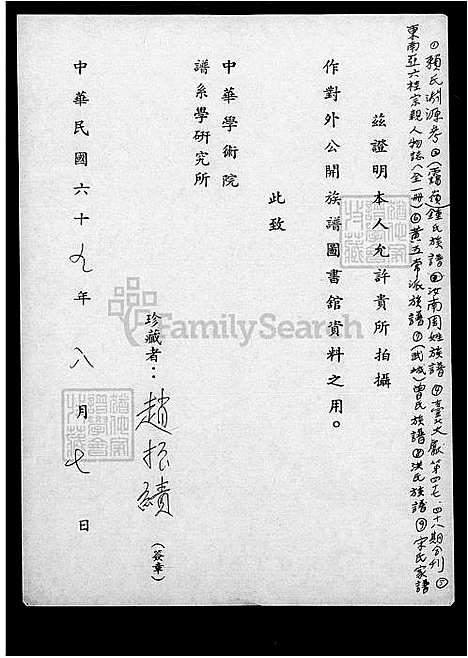 ①賴氏淵源考②(霞嶺)鍾氏族譜③汝南周姓族譜④臺北文獻第四七.四十八期合刊⑤
東南亞六桂宗親人物誌(全一冊)⑥黃五常派族譜⑦(武城)曾氏族譜⑧洪氏族譜⑨宋氏家譜
茲證明本人允許貴所拍攝
作對外公開族譜圖書館資料之用。
此致
中華學術院
譜系學研究所
珍藏者：趙振績（簽章）
中華民國六十九年八月七日
FamilySearch